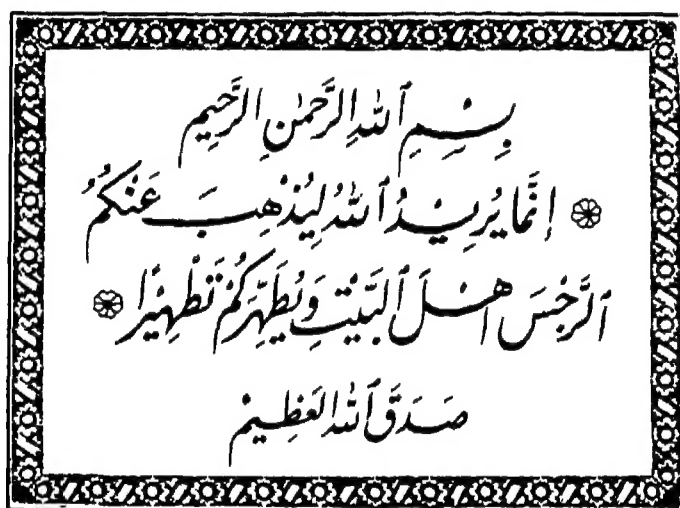 بِسْمِ ٱللهِ الرَّحْمٰنِ الرَّحِيمِ
إنَّمَا يُرِيدُ ٱللهُ لِيُذْهِبَ عَنْكُمُ
ٱلرِّجْسَ اَهْلَ ٱلْبَيْتِ وَيُطَهِّرَكُمْ تَطْهِيرًا
صَدَقَ ٱللهُ العَظِيمْ